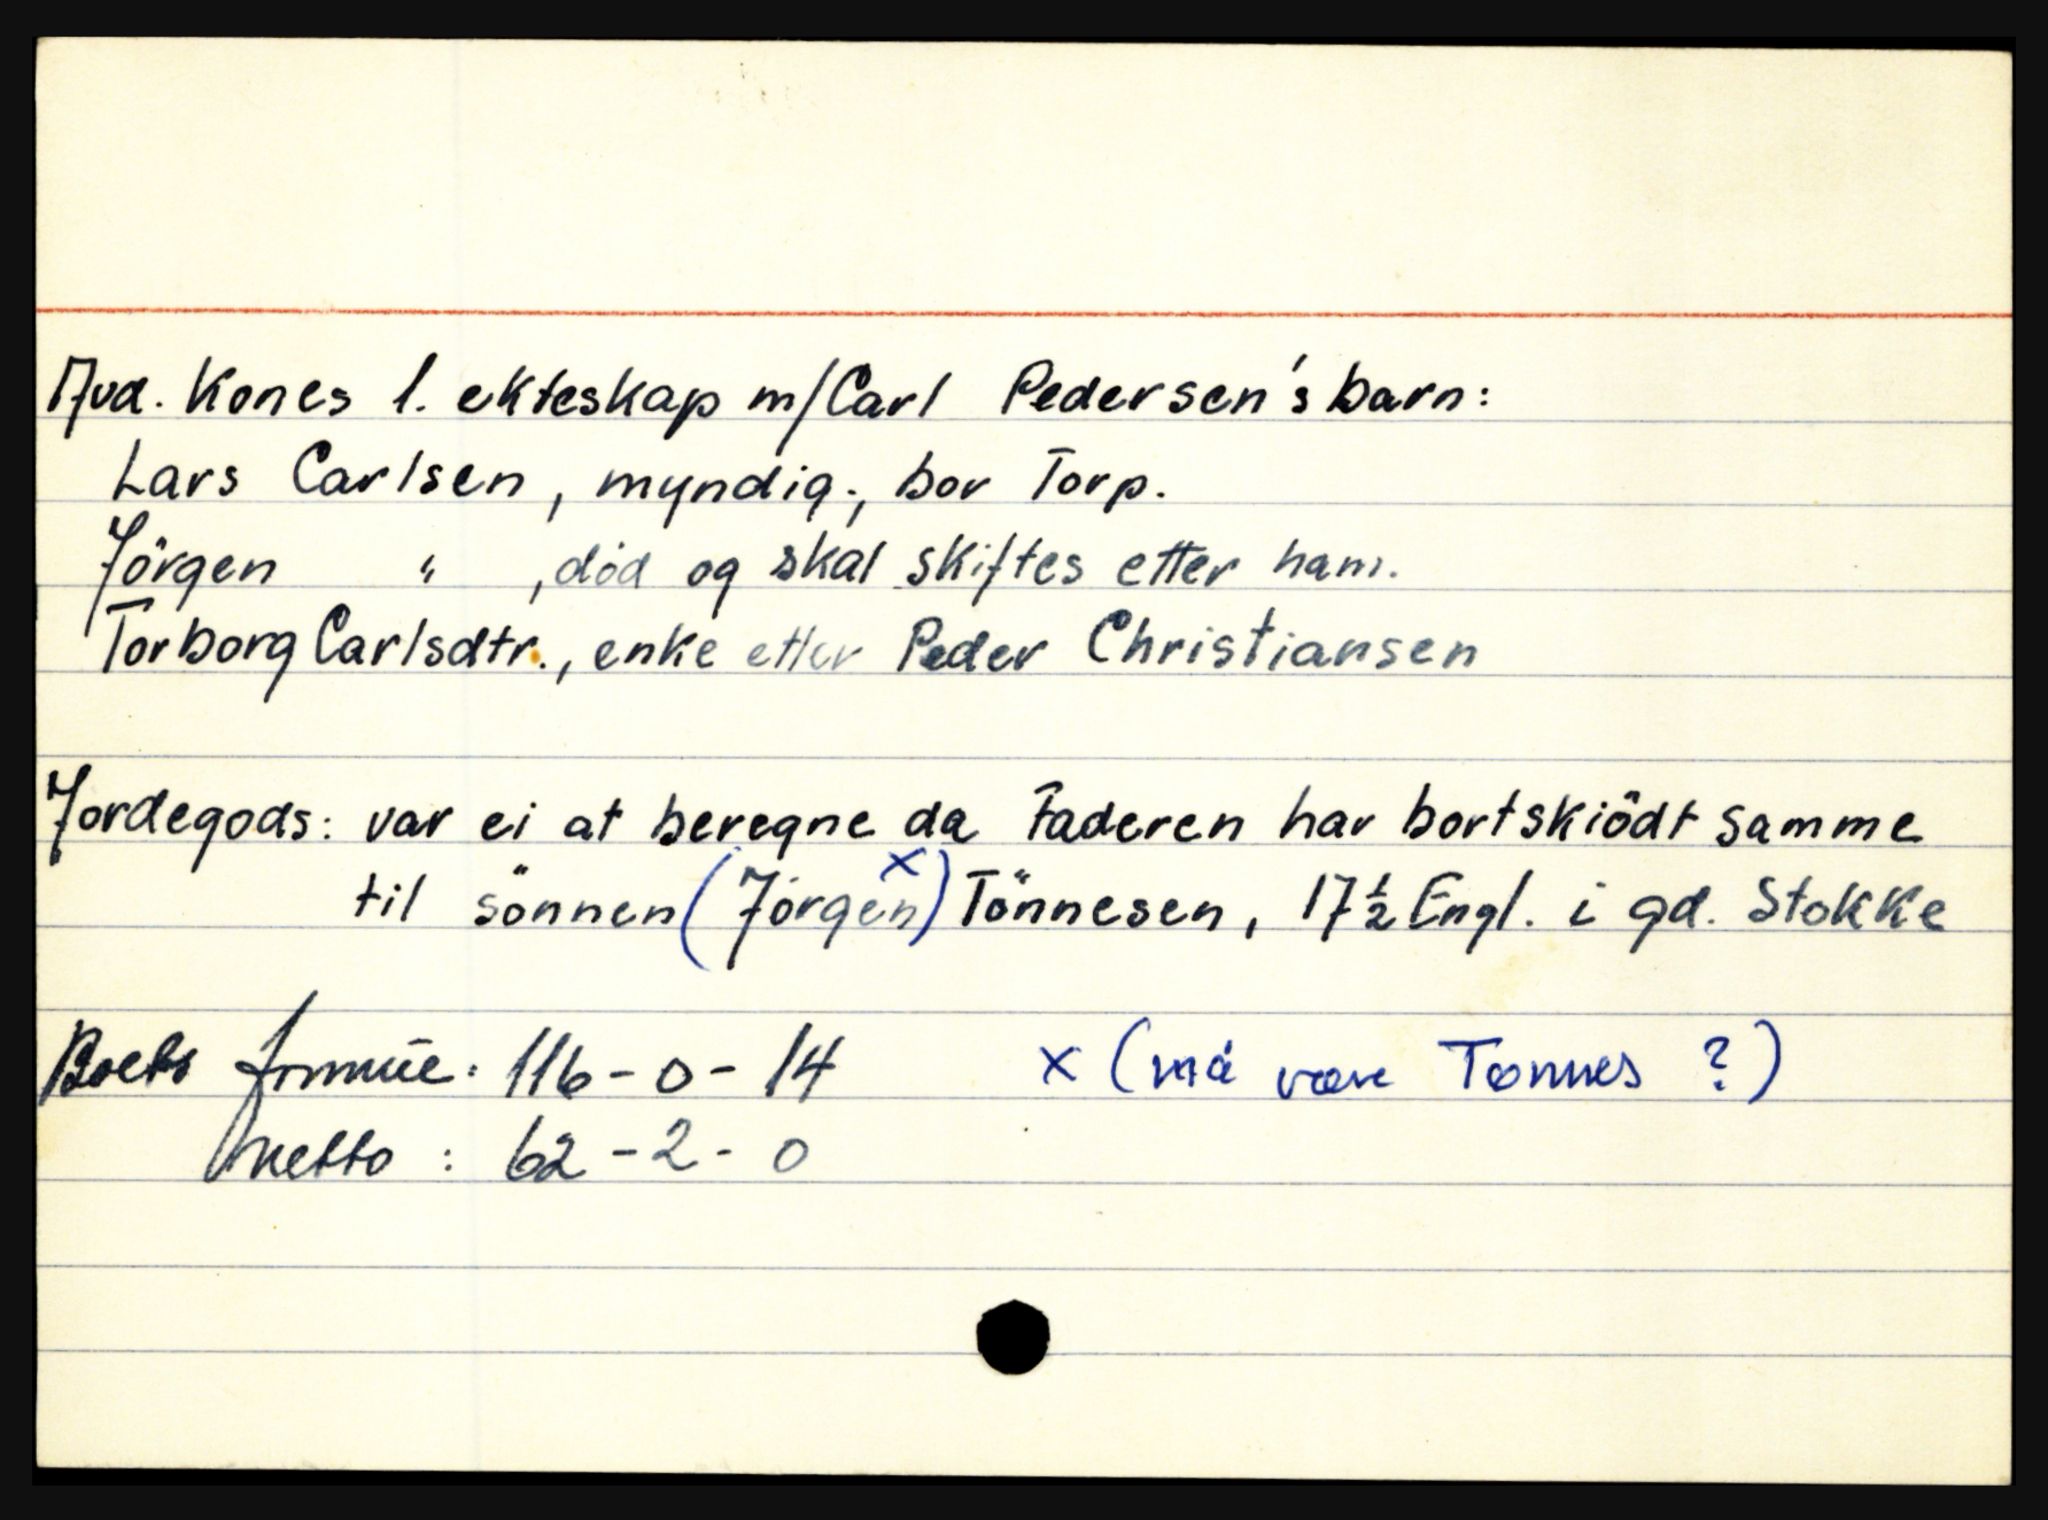 Avd. Kones 1. ekteskap m/Carl Pedersen's barn:
Lars Carlsen, myndig., bor Torp.
Jörgen " , död og skal skiftes etter ham.
Torborg Carlsdtr., enke etter Peder Christiansen
Jordegods: var ei at beregne da Faderen har bortskiödt samme
til sönnen (Jörgen x) Tönnesen, 17 1/2 Engl. i gd. Stokke
Boets formue: 116-0-14 x (må være Tønnes ?)
netto: 62-2-0